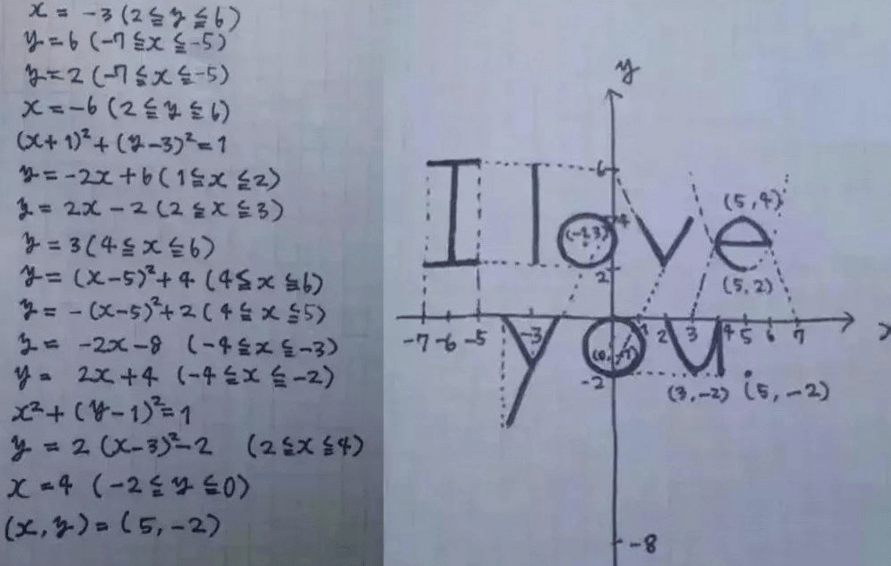 x = -3 (2 ≦ y ≦ 6)
y = 6 (-7 ≦ x ≦ -5)
y = 2 (-7 ≦ x ≦ -5)
x = -6 (2 ≦ y ≦ 6)
(x+1)² + (y-3)² = 1
y = -2x + 6 (1 ≦ x ≦ 2)
y = 2x - 2 (2 ≦ x ≦ 3)
y = 3 (4 ≦ x ≦ 6)
y = (x-5)² + 4 (4 ≦ x ≦ 6)
y = -(x-5)² + 2 (4 ≦ x ≦ 5)
y = -2x - 8 (-4 ≦ x ≦ -3)
y = 2x + 4 (-4 ≦ x ≦ -2)
x² + (y-1)² = 1
y = 2(x-3)² - 2 (2 ≦ x ≦ 4)
x = 4 (-2 ≦ y ≦ 0)
(x, y) = (5, -2)
y
6
I love
4
(5, 4)
2
(5, 2)
-7 -6 -5 -3 1 2 3 4 5 6 7 x
you
-2
(3, -2) (5, -2)
-8